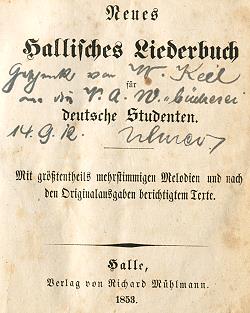 Neues
Hallisches Liederbuch
Geschenk von W. Keil
für
an die V. A. W. Bücherei
deutsche Studenten.
14.9.12.
Mit größtentheils mehrstimmigen Melodien und nach
den Originalausgaben berichtigtem Texte.
Halle,
Verlag von Richard Mühlmann.
1853.